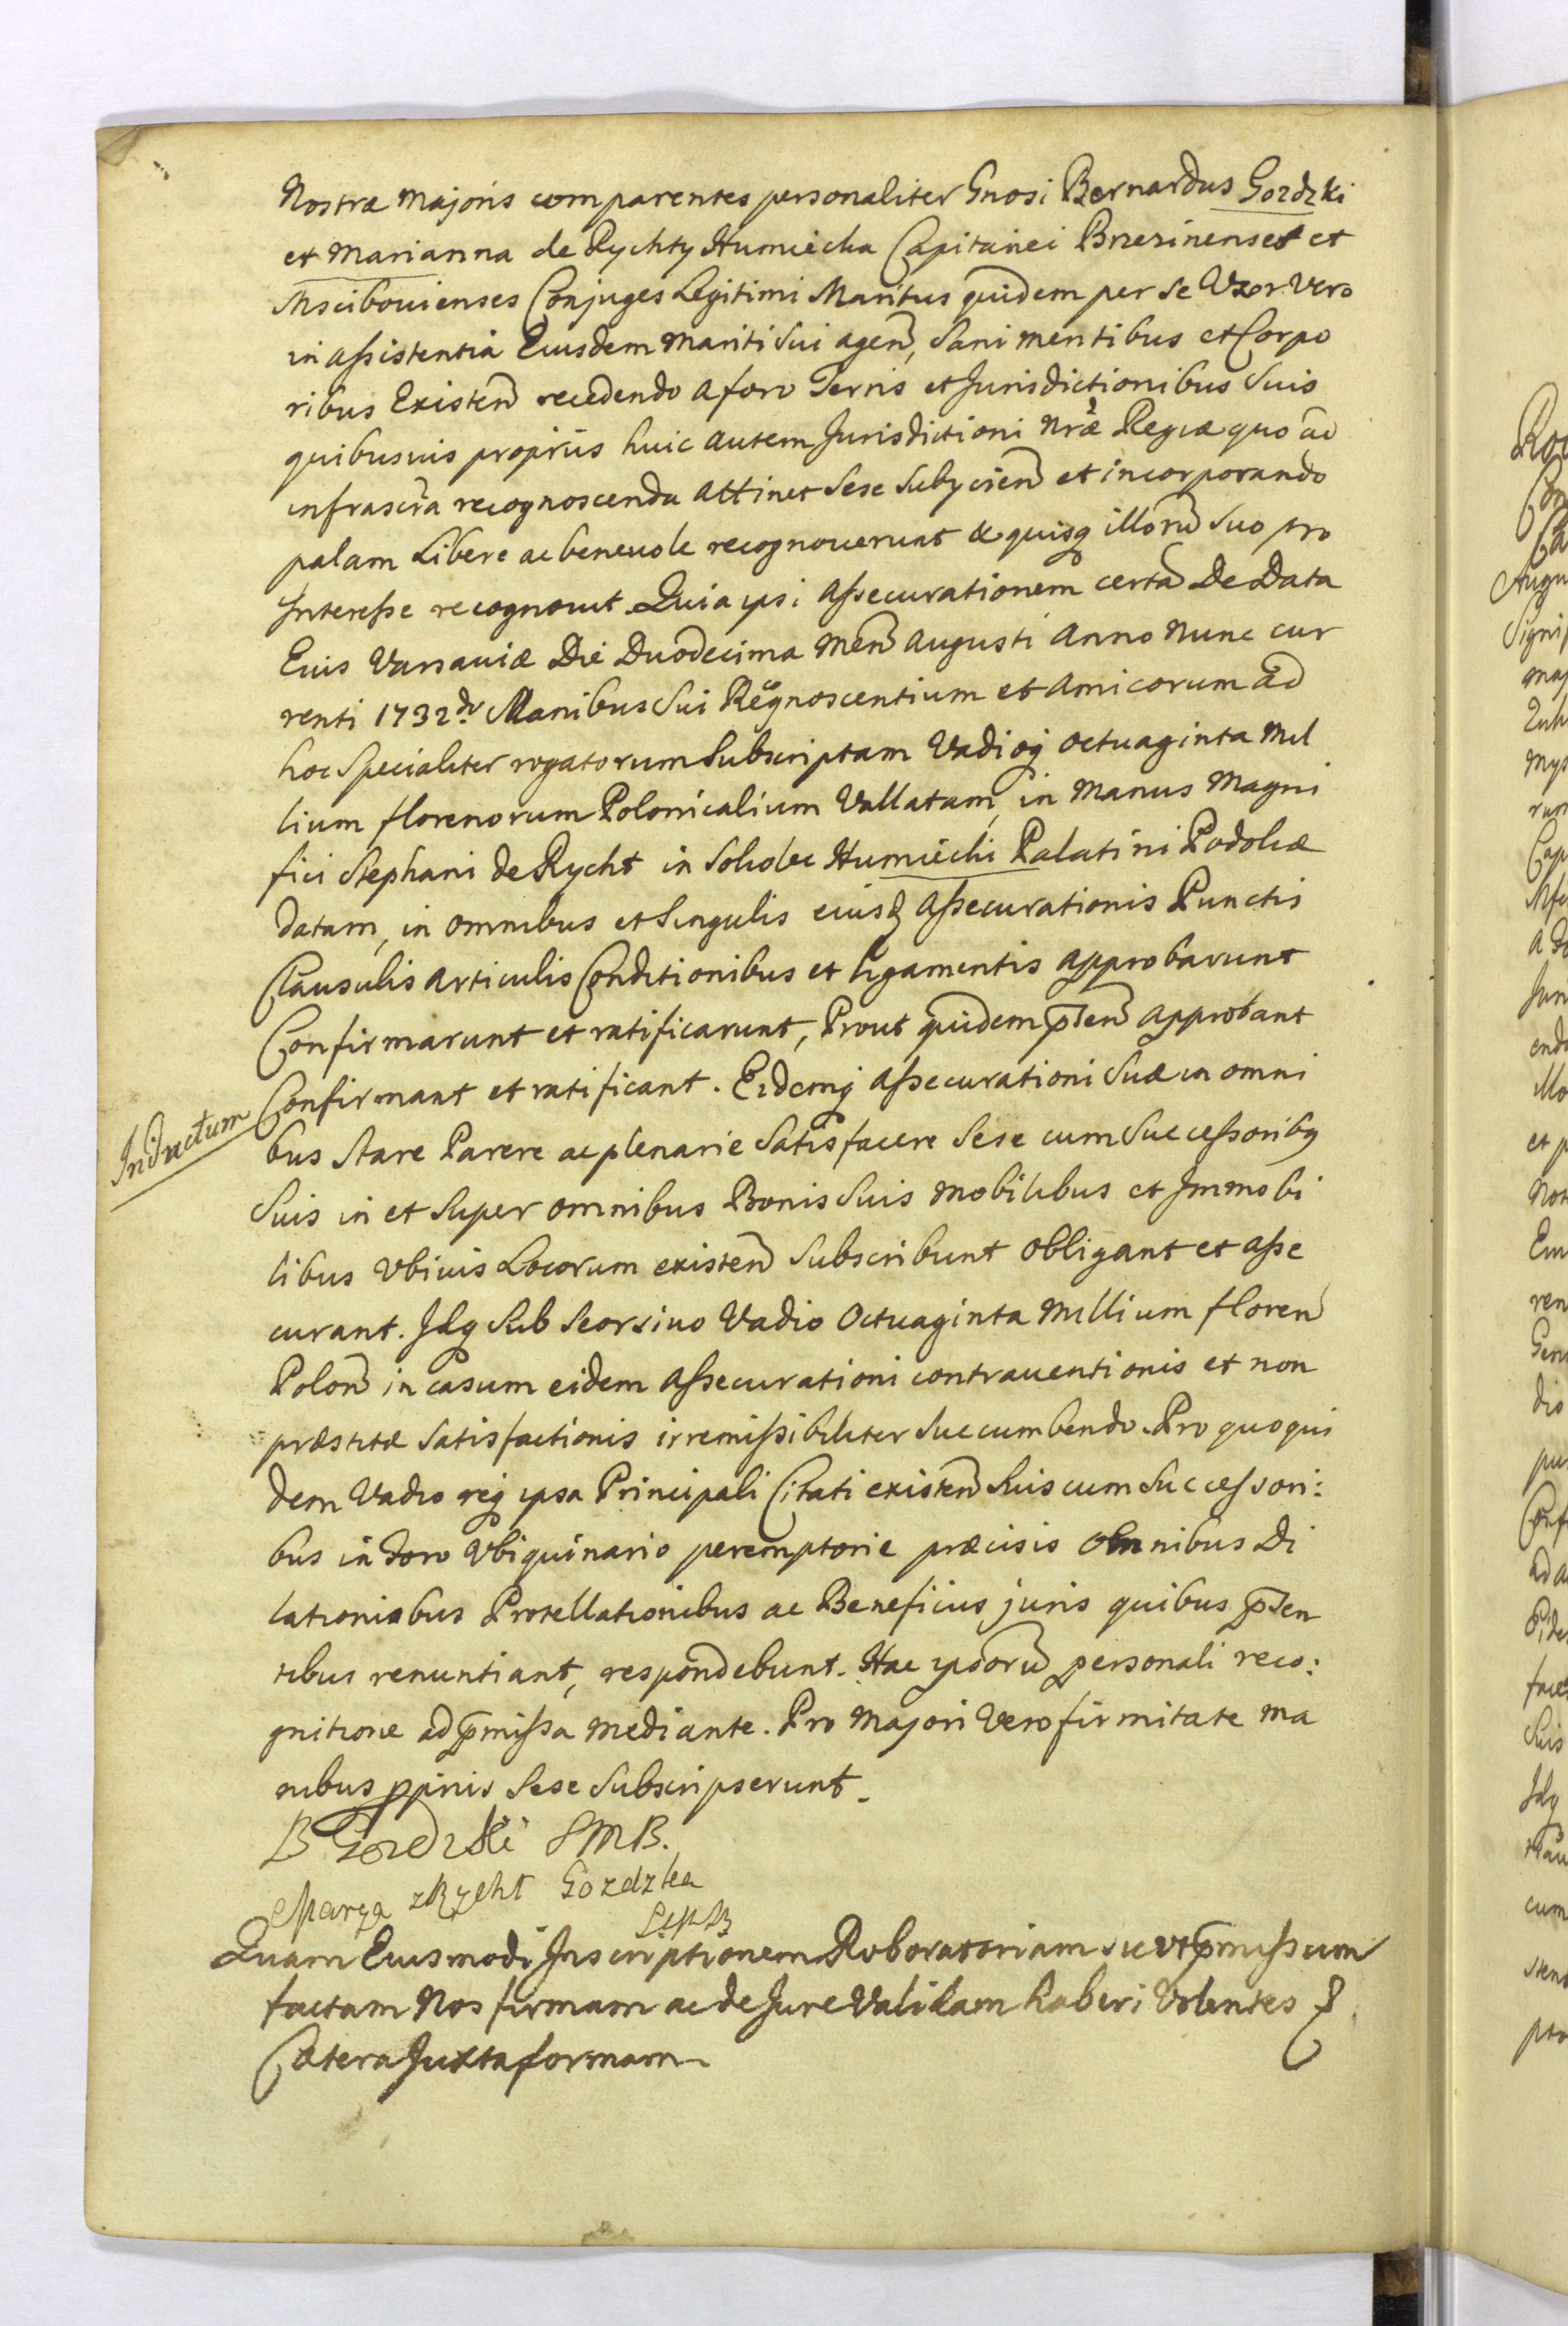 Nostra Majoris comparentes personaliter Gnosi Bernardus Gozdzki
et Marianna de Rychty Humiecka Capitanei Brzesinenses et
Mscibovienses Conjuges Legitimi Maritus quidem per se Uxor Vero
in assistentia Eiusdem Mariti Sui agen̄, Sani mentibus et Corpo
ribus Existen̄ recedendo a foro Terris et Jurisdictionibus Suis
quibusvis proprijs huic autem Jurisdictioni Nr̃æ Regiæ quo ad
infrascr̃a recognoscenda attinet Sese Subycien̄ et incorporando
palam Libere ac benevole recognoverunt & quisq illorū Suo pro
Interesse recognovit. Quia ipsi Assecurationem certā De Data
Eius Varsaviæ Die Duodecima Men̄ Augusti Anno Nunc cur
renti 1732do Manibus Sui Recognoscentium et Amicorum ad
hoc Specialiter rogatorum Subscriptam Vadioq octuaginta Mil
lium florenorum Polonicalium Vallatam, in Manus Magni
fici Stephani de Rycht in Humiecki Palatini Podoliæ
datam, in omnibus et Singulis eiusd Assecurationis Punctis
Clausulis Articulis Conditionibus et ligamentis approbarunt
Confirmarunt et ratificarunt, Prout quidem p̄ten̄ approbant
Confirmant et ratificant. Eidemq Assecurationi Suæ in omni
Inductum
bus Stare Parere ac plenarie Satisfacere Sese cum Successoribq
Suis in et Super omnibus Bonis Suis mobilibus et Immobi
libus Ubivis Locorum existen̄ Subscribunt obligant et asse
curant. Idq Sub Seorsivo Vadio Octuaginta Millium floren̄
Polon̄ in casum eidem Assecurationi contraventionis et non
præstitæ Satisfactionis irremissibiliter Succumbendo. Pro quo qui
dem Vadio req ipsa Principali Citati existen̄ Suis cum Successori:
bus in foro Ubiquinario peremptorie præcisis omnibus Di
lationibus Protellationibus ac Beneficiis juris quibus p̄ten
tibus renuntiant, respondebunt. Hac ipsorū personali reco:
gnitione ad p̄missa Mediante. Pro Majori Vero firmitate ma
nibus pprijs Sese Subscripserunt.
B Gozdzki SMB.
Marya z Rycht Gozdzka
Quam Eiusmodi Inscriptionem Roboratoriam sic ut p̄missum
factam Nos firmam ac de Jure Validam haberi Volentes
Cætera Juxta formam